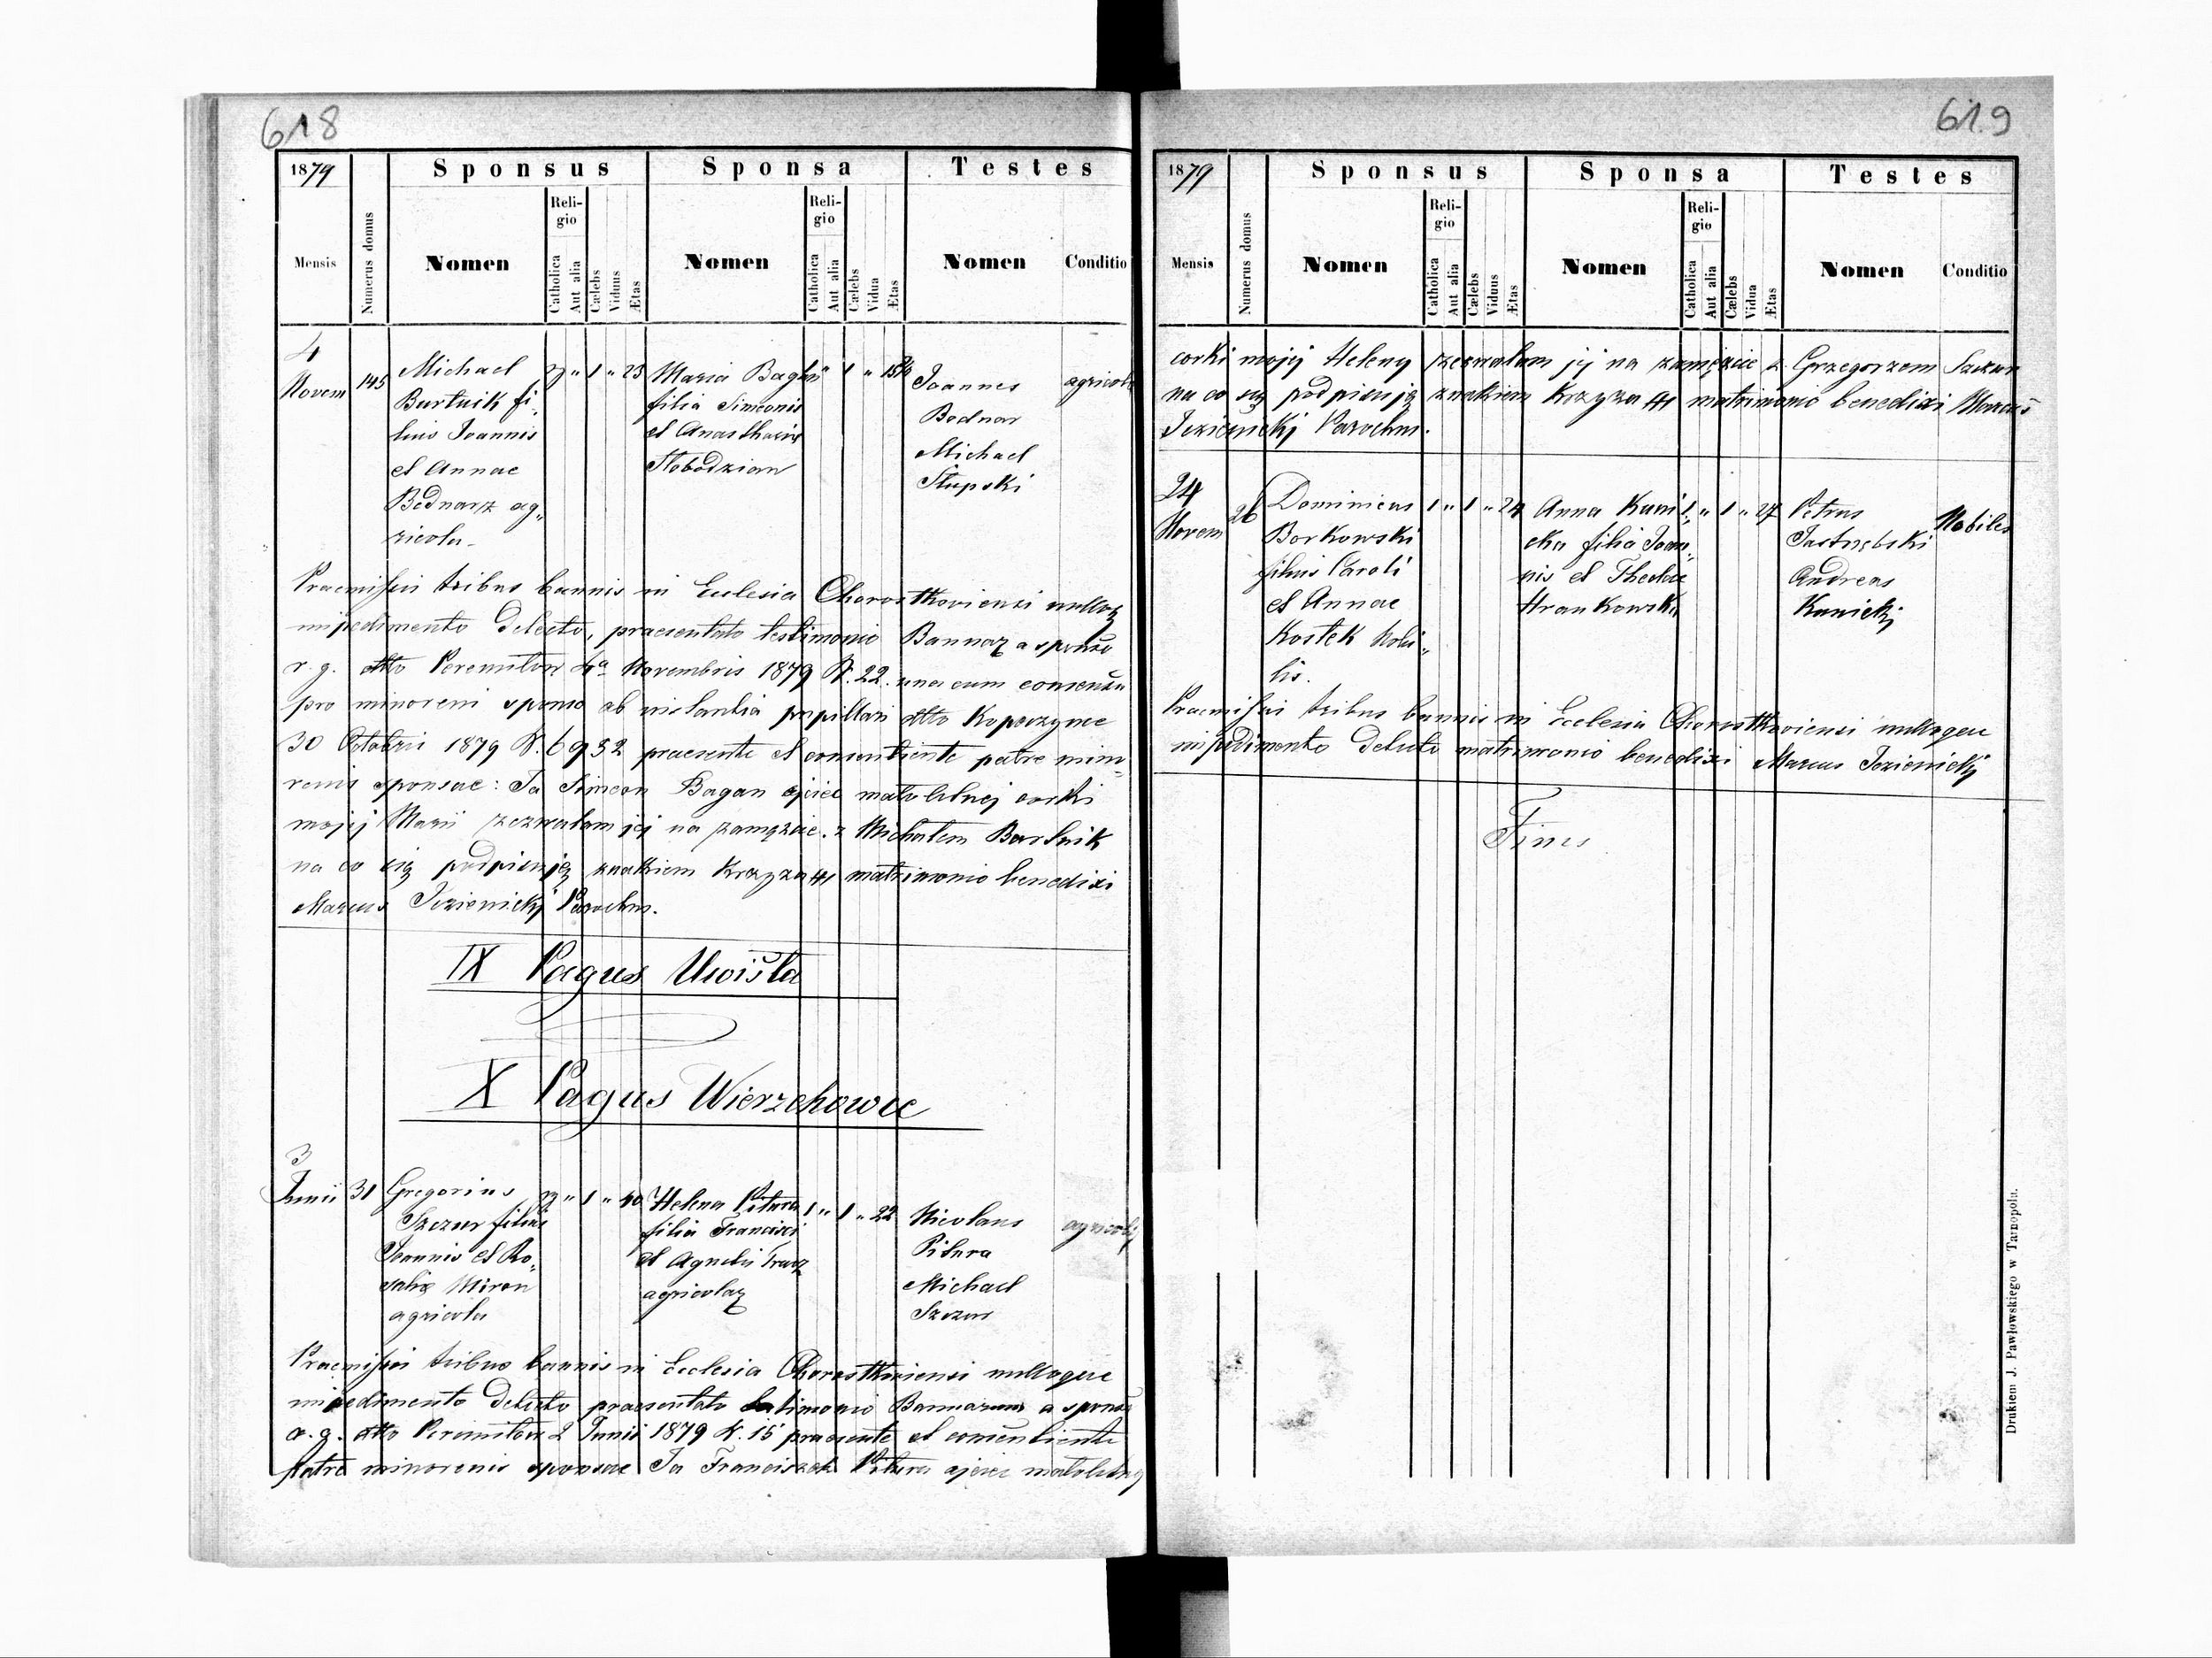 618
1879
Sponsus
Sponsa
Testes
Mensis
Numerus domus
Nomen
Religio
Catholica
Aut alia
Cælebs
Viduus
Ætas
Nomen
Religio
Catholica
Aut alia
Cælebs
Vidua
Ætas
Nomen
Conditio
4
Novem
145
Michael
Burtnik fi-
lius Joannis
et Annae
Bednarz ag-
ricola
1 " 23
Maria
filia Simeonis
et Anasthasiæ
Slobodzian
1 "
Joannes
Bodnar
Michael
Slupski
agricola
Praemissis tribus bannis in Ecclesia Chorostkoviensi nulloq
impedimento detecto, praesentato testimonio Bannor a sponso
r. g. dtto Peremilow 4a Novembris 1879 N. 22. una cum consensu
pro minoreni sponso ab instantia pupillari dtto Kopeczynce
30 Octobris 1879 N. 6932 praesente et consentiente patre mino-
renis sponsae: Ja Simeon Bagan ojciec małoletnej corki
mojej Marii zezwalam jej na zamęzcie z Michałem Burtnik
na co się podpisuję znakiem Krzyza matrimonio benedixi
Marcus Jezienicky Parochus.
IX Pagus Uwisła
X Pagus Wierzchowce
3
Junii
31
Gregorius
Szczur filius
Joannis et Ro-
saliæ Miron
agricola
1 " 40
Helena Pitura
filia Francisci
et Agnetis
agricolar
1 " 1 " 22
Nicolaus
Pitura
Michael
Szczur
agricolæ
Praemissis tribus bannis in Ecclesia Chorostkoviensi nulloque
impedimento detecto praesentato testimonio Bannorum a sponso
r. g. dtto Peremilow 2 Junii 1879 N. 15 praesente et consentiente
patre minorenis sponsae Ja Franciszek Pitura ojciec małoletnej
619
1879
Sponsus
Sponsa
Testes
Mensis
Numerus domus
Nomen
Religio
Catholica
Aut alia
Cælebs
Viduus
Ætas
Nomen
Religio
Catholica
Aut alia
Cælebs
Vidua
Ætas
Nomen
Conditio
corki mojej Heleny zezwalam jej na zamęzcie z Grzegorzem Szczur
na co się podpisuję znakiem Krzyza matrimonio benedixi Marcus
Jezienicky Parochus.
24
Novem
26
Dominicus
Borkowski
filius Caroli
et Annae
Kostek nobi-
lis.
1 " 1 " 24
Anna Kuni-
cka filia Joan-
nis et Theclae
Hrankowska
1 " 1 " 27
Petrus
Jastrzebski
Andreas
Kunicki
Nobiles
Praemissis tribus bannis in Ecclesia Chorostkoviensi nulloque
impedimento detecto matrimonio benedixi Marcus Jezienicky
Finis
Drukiem J. Pawłowskiego w Tarnopolu.